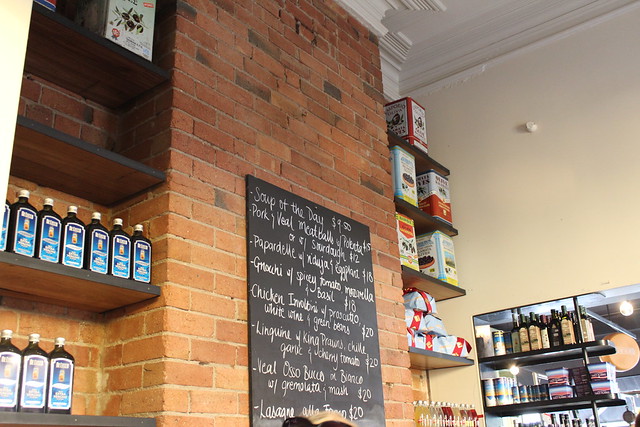 - Soup of the Day $9.50
- Pork & Veal Meatballs w/ Potato $15
or w/ Sourdough $12
- Papardelle w/ n'duja & Eggplant $18
- Gnocchi w/ spicey tomato mozzarella
& Basil $18
- Chicken Involtini w/ proscuitto
white wine & green beans $20
- Linguine w/ King Prawns, chilli
garlic & cherry tomato $20
- Veal Osso Bucco in Bianco
w/ gremolata & mash $20
- Lasagne alla Forno $20